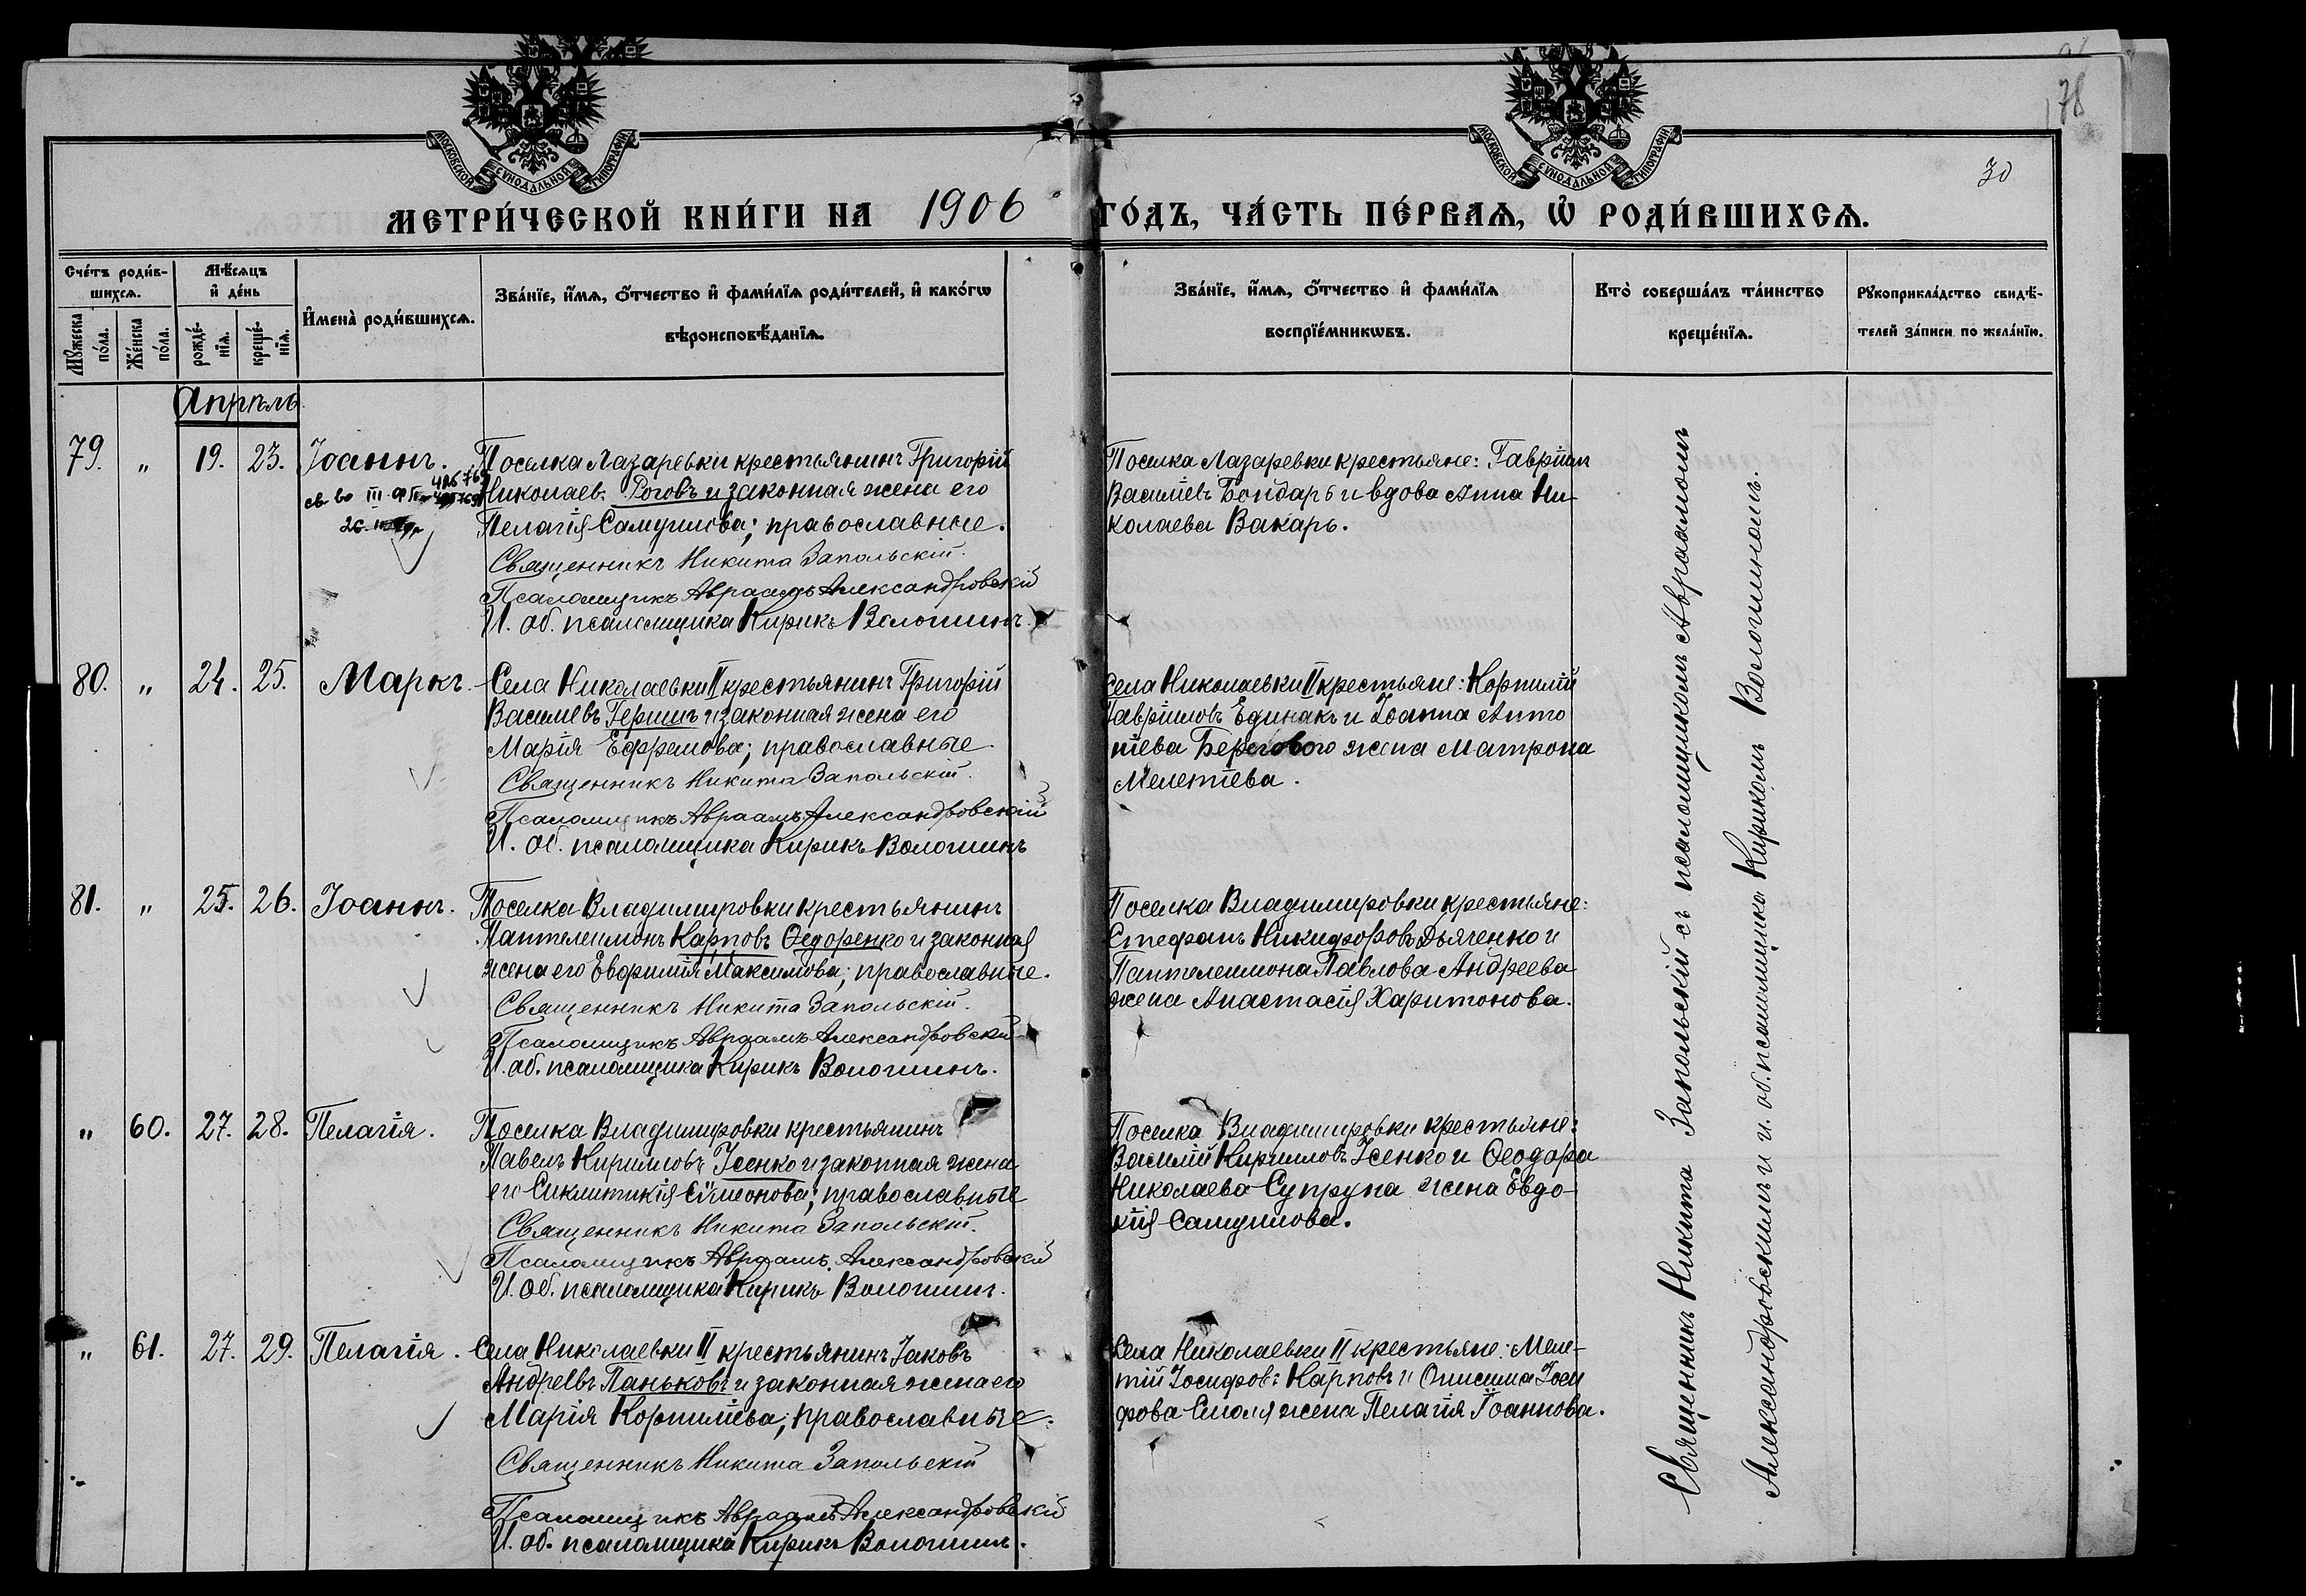 78
30
МОСКОВСКОЙ СѴНОДАЛЬНОЙ ТИПОГРАФІИ
МОСКОВСКОЙ СѴНОДАЛЬНОЙ ТИПОГРАФІИ
МЕТРИ́ЧЕСКОЙ КНИ́ГИ НА 1906 ГО́ДЪ, ЧА́СТЬ ПЕ́РВАѦ, Ѡ҆ РОДИ́ВШИХСѦ.
Сче́тъ роди́в-
шихсѧ.
Мꙋ́жеска по́ла.
Же́нска по́ла.
Мѣ́сѧцъ
и҆ де́нь
рожде́-
нїѧ.
креще́-
нїѧ.
И҆мена̀ роди́вшихсѧ.
Зва́нїе, и҆́мѧ, ѻ҆́тчество и҆ фами́лїѧ роди́телей, и҆ како́гѡ
вѣроисповѣ́данїѧ.
Зва́нїе, и҆́мѧ, ѻ҆́тчество и҆ фами́лїѧ
воспрїе́мникѡвъ.
Кто̀ соверша́лъ та́инство
креще́нїѧ.
Рꙋкоприкла́дство свидѣ́-
телей за́писи по жела́нїю.
Апрѣль
79. „ 19. 23. Іоаннъ.
св. во III
Поселка Лазаревки крестьянинъ Григорій
Николаев. Роговъ и законная жена его
Пелагія Самуилова; православные.
Священникъ Никита Запольскій.
Псаломщикъ Авраамъ Александровскій
И. об. псаломщика Кирикъ Волошинъ.
Поселка Лазаревки крестьяне: Гавріилъ
Василіевъ Бондарь и вдова Анна Ни-
колаева Вакарь.
80. „ 24. 25. Маркъ.
Села Николаевки II крестьянинъ Григорій
Василіевъ Гершъ и законная жена его
Марія Ефремова; православные.
Священникъ Никита Запольскій.
Псаломщикъ Авраамъ Александровскій
И. об. псаломщика Кирикъ Волошинъ
Села Николаевки II крестьяне: Корнилій
Гавріиловъ Единакъ и Іоанна Анто
ніева Берегового жена Матрона
Мелетіева.
81. „ 25. 26. Іоаннъ.
Поселка Владимировки крестьянинъ
Пантелеимонъ Карповъ Ѳедоренко и законная
жена его Евфимія Максимова; православные.
Священникъ Никита Запольскій.
Псаломщикъ Авраамъ Александровскій
И. об. псаломщика Кирикъ Волошинъ.
Поселка Владимировки крестьяне:
Стефанъ Никифоровъ Дьяченко и
Пантелеимона Павлова Андреева
жена Анастасія Харитонова.
„ 60. 27. 28. Пелагія.
Поселка Владимировки крестьянинъ
Павелъ Кирилловъ Ісенко и законная жена
его Сиклитикія Симеонова; православные
Священникъ Никита Запольскій.
Псаломщикъ Авраамъ Александровскій
И. об. псаломщика Кирикъ Волошинъ.
Поселка Владимировки крестьяне:
Василій Кирилловъ Ісенко и Ѳеодора
Николаева Супруна жена Евдо-
кія Самуилова.
„ 61. 27. 29. Пелагія.
Села Николаевки II крестьянинъ Іаковъ
Андреевъ Паньковъ и законная жена его
Марія Корниліева; православные.
Священникъ Никита Запольскій
Псаломщикъ Авраамъ Александровскій
И. об. псаломщика Кирикъ Волошинъ.
Села Николаевки II крестьяне: Меле-
тій Іосифовъ Карповъ и Онисима Іоси
фова жена Пелагія Іоаннова.
Священникъ Никита Запольскій съ псаломщикомъ Авраамомъ
Александровскимъ и и. об. псаломщика Кирикомъ Волошиномъ.